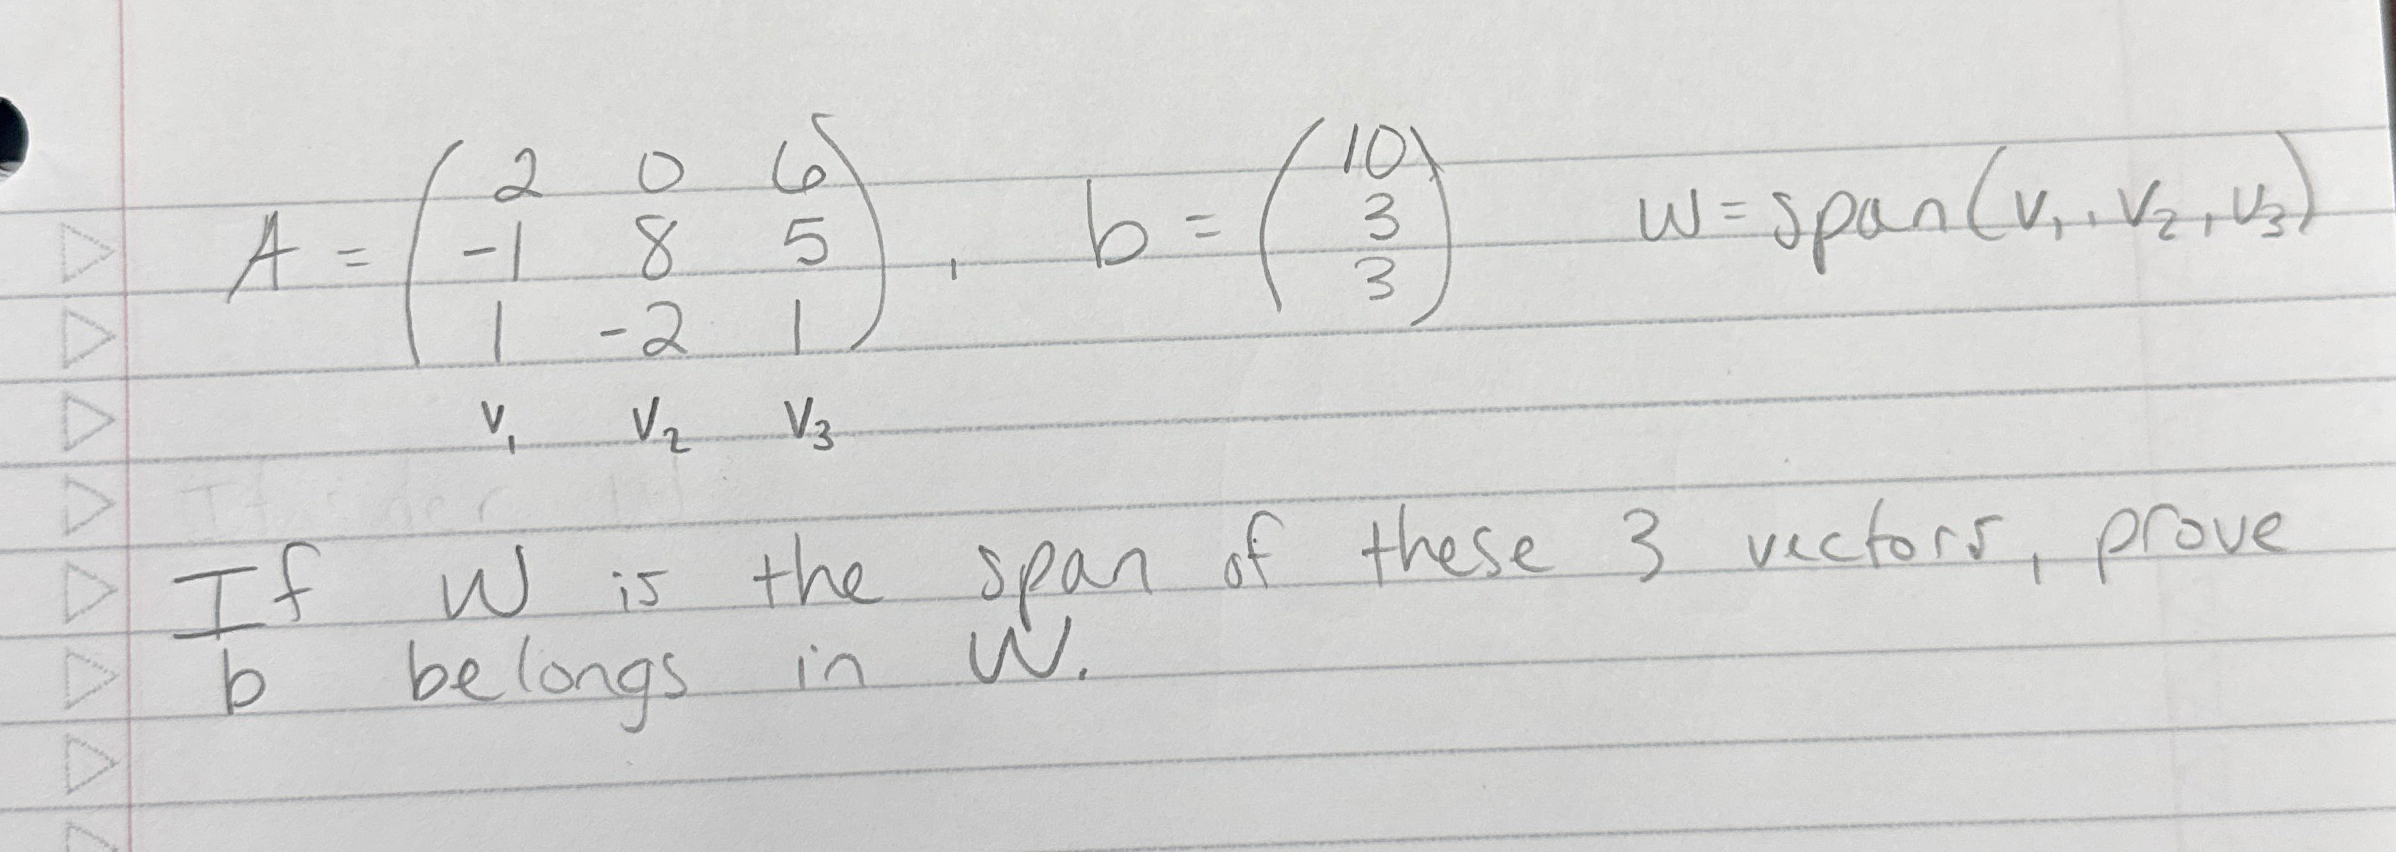 A = ( 2 0 6 -1 8 5 1 -2 1 ), b = ( 10 3 3 ) W = span(v₁, v₂, v₃)
v₁ v₂ v₃
If W is the span of these 3 vectors, prove
b belongs in W.